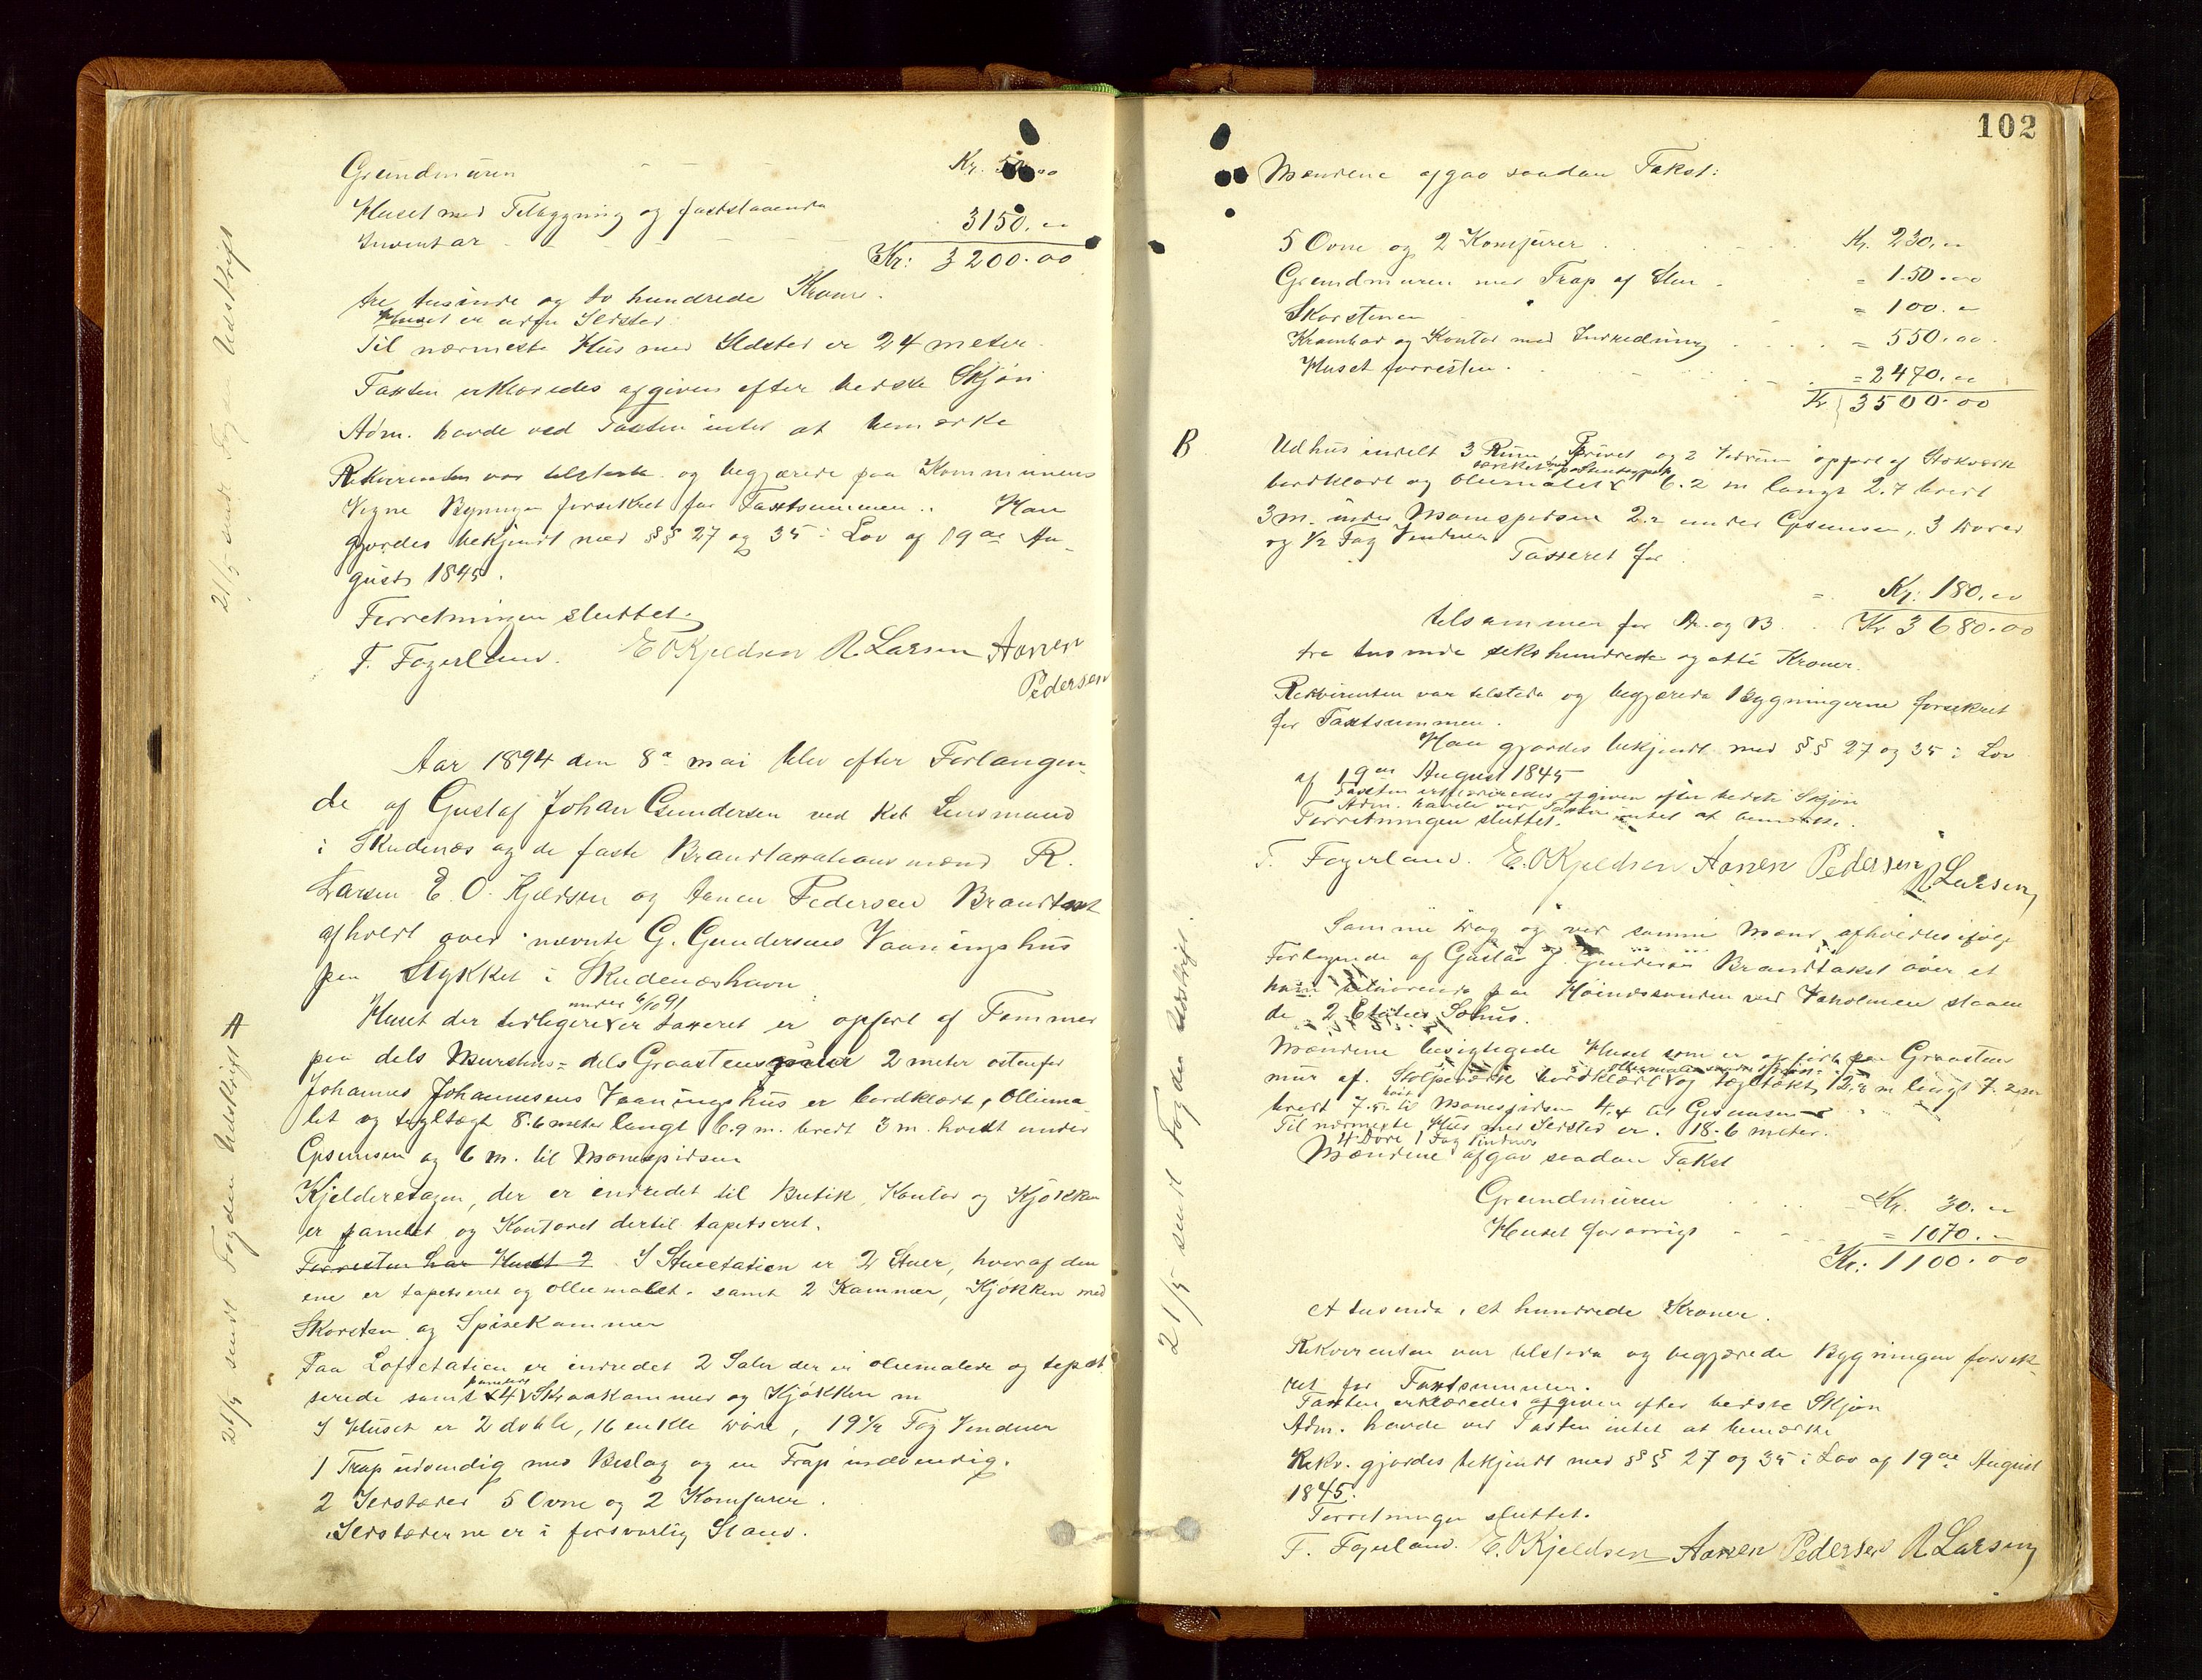 Grundmuren Kr. 50.00
Huset med Tilbygning og faststaaende
Inventar 3150.00
Kr: 3200.00
tre tusinde og to hundrede Kroner.
Huset er uden Ildsted
Til nærmeste Hus med Ildsted er 24 meter.
Taxten erklæredes afgiven efter bedste Skjøn
Adm. havde ved Taxten intet at bemærke
Rekvirenten var tilstede og begjærede paa Kommunens
Vegne Bygningen forsikret for Taxtsummen. Han
gjordes bekjendt med §§ 27 og 35 i Lov af 19de Au-
gust 1845.
Forretningen sluttet.
T. Fagerland. E O Kjeldsen R Larsen Aanen
Pedersen
21/5 sendt Fogden Udskrift
Aar 1894 den 8de mai blev efter Forlangen-
de af Gustaf Johan Gundersen ved Kst Lensmand
i Skudenæs og de faste Brandtaxationsmænd R.
Larsen E. O. Kjeldsen og Aanen Pedersen Brandtaxt
afholdt over nævnte G. Gundersens Vaaningshus
paa Stykket i Skudeneshavn
A
under 6/10 91
Huset der tidligere er taxeret er opført af Tømmer
paa dels Murstens- dels Graastensmur 2 meter østenfor
Johannes Johannesens Vaaningshus er bordklædt, olliema-
let og tegltægt 8.6 meter langt 6.9 m. bredt 3 m. høidt under
Gesimsen og 6 m. til Mønespidsen
Kjelderetagen, der er indredet til Butik, Kontor og Kjøkken
er panelet og Kontoret dertil tapetseret.
Forresten har Huset 2 I Stueetatien er 2 Stuer, hvoraf den
ene er tapetseret og olliemalet. samt 2 Kammer, Kjøkken med
Skorsten og Spisekammer
Paa Loftetatien er indredet 2 Saler der er oliemalede og tapet
serede samt panelede 4 Skraakammer og Kjøkken m
I Huset er 2 doble, 16 enkle Døre, 19 1/2 Fag Vinduer
1 Trap udvendig med Beslag og en Trap indvendig.
2 Ildsteder 5 Ovne og 2 Komfurer.
Ildstederne er i forsvarlig Stand.
21/5 sendt Fogden Udskrift
102
Mændene afgav saadan Takst:
5 Ovne og 2 Komfurer Kr. 230.00
Grundmuren med Trap af Sten = 150.00
Skorstenen = 100.00
Krambod og Kontor med Indredning = 550.00
Huset forresten = 2470.00
Kr 3500.00
B
Udhus indelt 3 Rum, Privet og 2 Vedrum opført af Stokværk
bordklædt og oliemalet tækket med 6.2 m langt 2.7 bredt
3 m. under Mønespidsen 2.2 under Gesimsen, 3 Døre
og 1/2 Fag Vinduer
Taxeret for
Kr: 180.00
tilsammen for A. og B. Kr 3680.00
tre tusinde sekshundrede og otti Kroner.
Rekvirenten var tilstede og begjærede Bygningerne forsikret
for Taxtsummen.
Han gjordes bekjendt med §§ 27 og 35 i Lov
af 19de August 1845
Taxten erklæredes afgiven efter bedste Skjøn
Adm. havde ved Taxten intet at bemærke.
Forretningen sluttet.
T. Fagerland. E. O Kjeldsen Aanen Pedersen R Larsen
Samme Dag og ved samme Mænd afholdtes ifølge
Forlangende af Gustav J. Gundersen Brandtakst over et
ham tilhørende paa Høinessanden ved Vaholmen staaen
de 2 Etatiers Søhus.
Mændene besigtigede Huset som er opført paa Graastens
mur af Stolpeværk bordklædt og tegltækt, 12.2 m langt 7.2 m
bredt 7.5 høit til Mønespidsen 4.4 til Gesimsen
Til nærmeste Hus med Ildsted er 18.6 meter.
4 Døre 1 Fag Vinduer
Mændene afgav saadan Takst
Grundmuren Kr. 30.00
Huset forøvrigt = 1070.00
Kr: 1100.00
et tusinde, et hundrede Kroner.
Rekvirenten var tilstede og begjærede Bygningen forsik-
ret for Taxtsummen.
Taxten erklæredes afgiven efter bedste Skjøn
Adm. havde ved Taxten intet at bemærke
Rekv. gjordes bekjendt med §§ 27 og 35 i Lov af 19de August
1845.
Forretningen sluttet.
T. Fagerland. E. O Kjeldsen Aanen Pedersen R Larsen
21/5 sendt Fogden Udskrift.